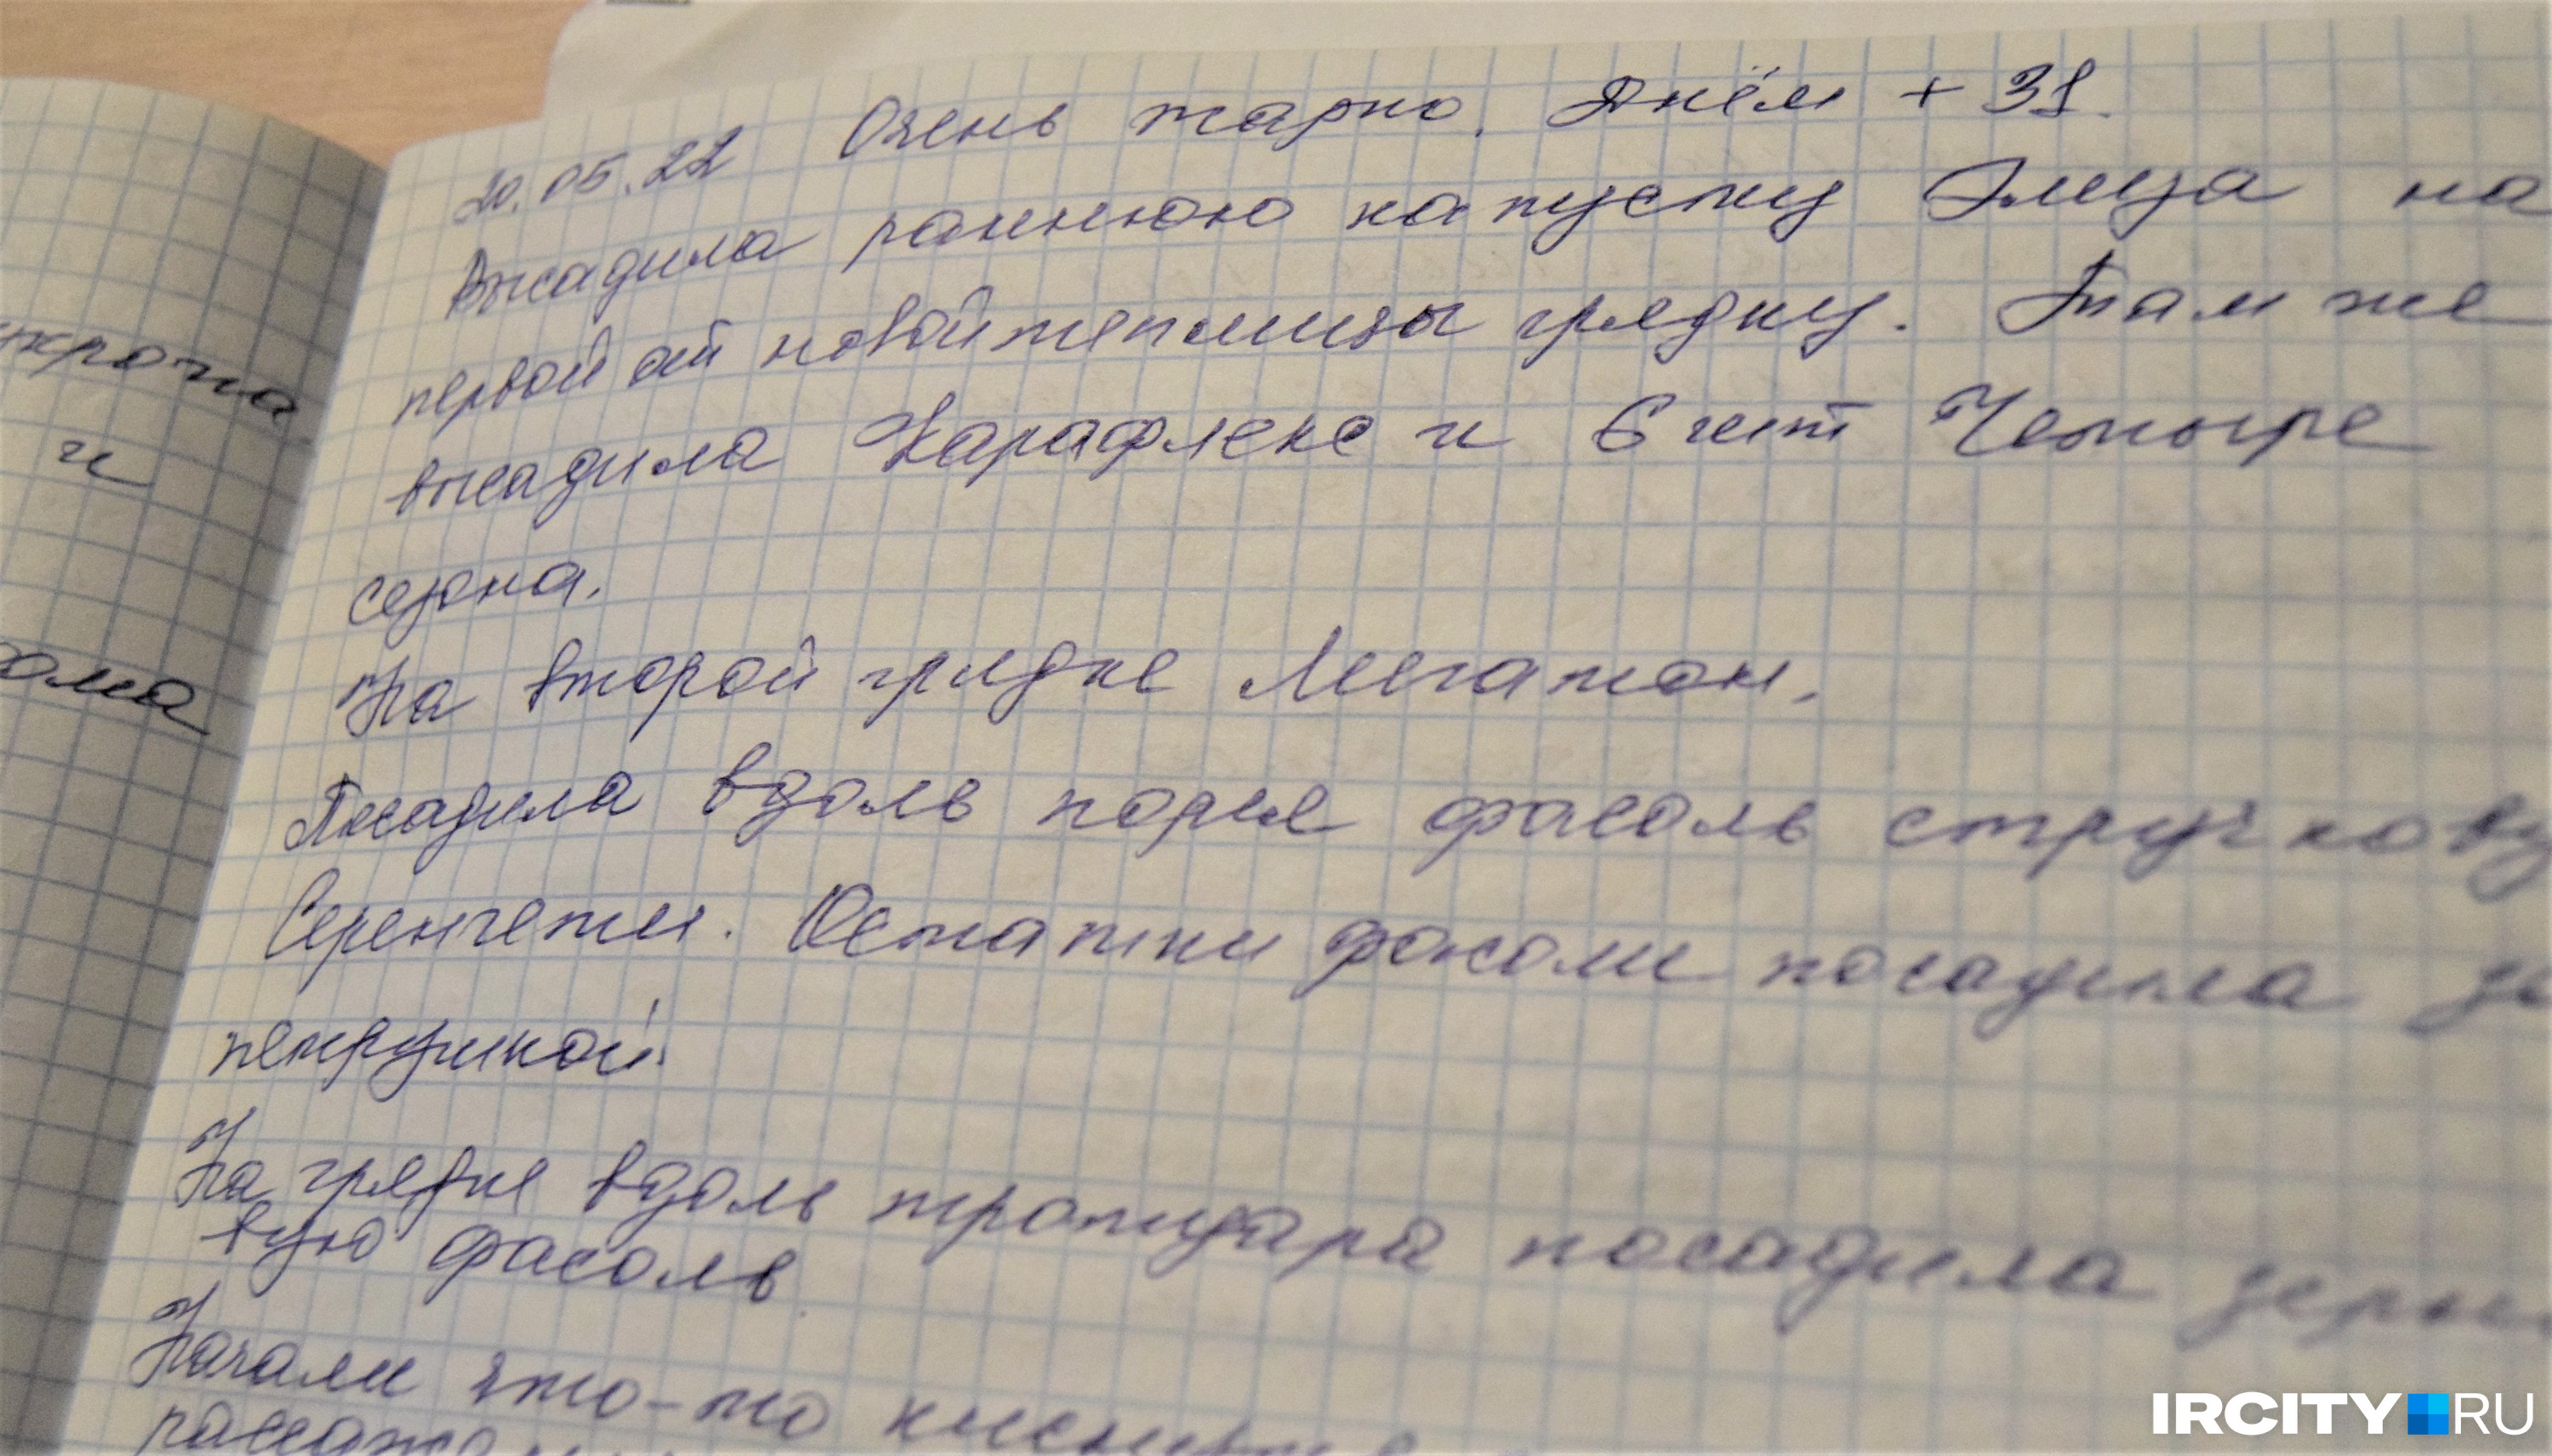 укропа
и
20.05.22 Очень жарко. Днём + 31.
Высадила раннюю капусту Элиза на
первой от новой теплицы грядку. Там же
высадила Карафлекс и 6 шт Четыре
сезона.
На второй грядке Мегатон.
Посадила вдоль фасоль стручкову
Серенгети. Остатки фасоли посадила за
петрушкой.
На грядке вдоль тротуара посадила зерно
вую фасоль
Начали что-то
IRCITY.RU